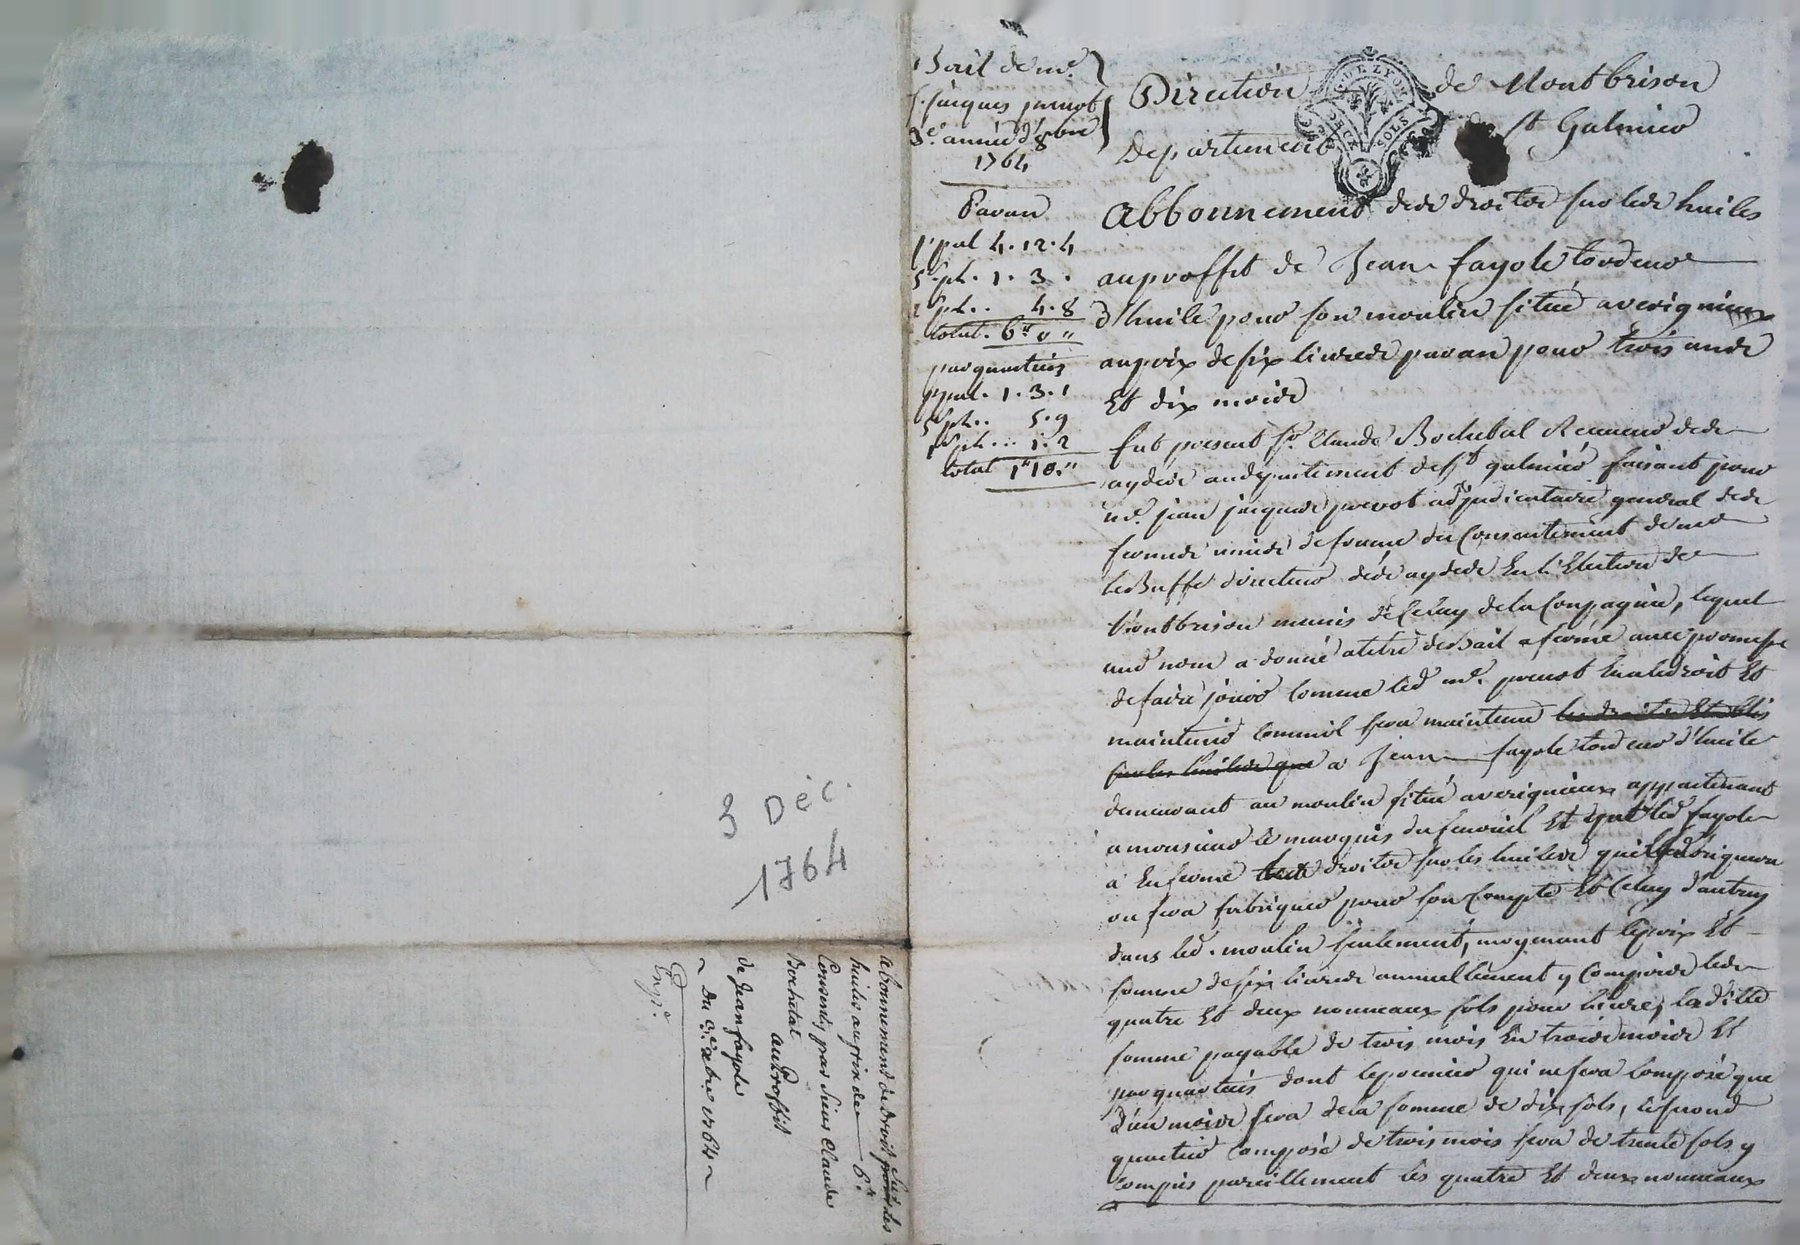 Bail de me.
J. jacques prevot
3e. année d'8bre
1764
Par an
p.pal 4. 12. 4
5 s.pl. 1. 3.
2 s.pl.. 4. 8
total. 6 tt 0 "
par quartiers
p.pal. 1. 3. 1
5 s.pl.. 5. 9
s.pl... 1. 2
total 1 tt 10. "
Direction de Montbrison
Departement de St Galmier
DE LYON
SOLS
Abbonnement des droits sur les huiles
au proffit de Jean fayole tordeur
d'huile pour son moulin situé a verignieux
au prix de six livres par an pour trois ans
Et dix mois
fut present sr. Claude Bochetal Receveur des
aydes au departement de st galmier faisant pour
me. jean jacques prevot adjudicataire general des
fermes unies de france du Consentement de mr
directeur des aydes En l'Election de
Montbrison muni de Celuy de la Compagnie, lequel
aud nom a donné a titre de Bail a ferme avec promesse
de faire jouir Comme led me. prevot En a le droit Et
maintenir Comme il sera maintenu les droits Etablis
sur les huiles que a Jean fayole tordeur d'huile
demeurant au moulin situé a verignieux appartenant
a monsieur le marquis du Et que led fayole
a En ferme les droits sur les huiles qu'il fabriquera
ou fera fabriquer pour son Compte Et Celuy d'autruy
dans led. moulin seulement, moyenant le prix Et
somme de six livres annuellement y Compris les
quatre Et deux nouveaux sols pour livre, la ditte
somme payable de trois mois En trois mois Et
par quartiers dont le premier qui ne sera Composé que
d'un mois sera de la somme de dix sols, le second
quartier Composé de trois mois sera de trente sols y
Compris pareillement les quatre Et deux nouveaux
3 Déc.
1764
abonnement de droit pour sur les
huiles au prix de 6 tt
Consenty par sieur Claude
Bochetal au proffit
de Jean fayole
Du 3e. xbre 1764